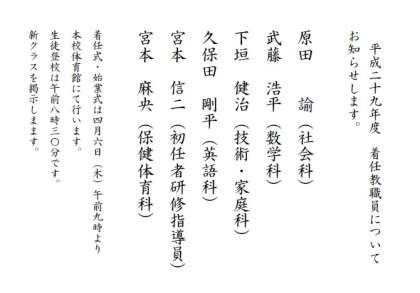 平成二十九年度　着任教職員について
お知らせします。
原田　諭（社会科）
武藤　浩平（数学科）
下垣　健治（技術・家庭科）
久保田　剛平（英語科）
宮本　信二（初任者研修指導員）
宮本　麻央（保健体育科）
着任式・始業式は四月六日（木）午前九時より
本校体育館にて行います。
生徒登校は午前八時三〇分です。
新クラスを掲示しまます。